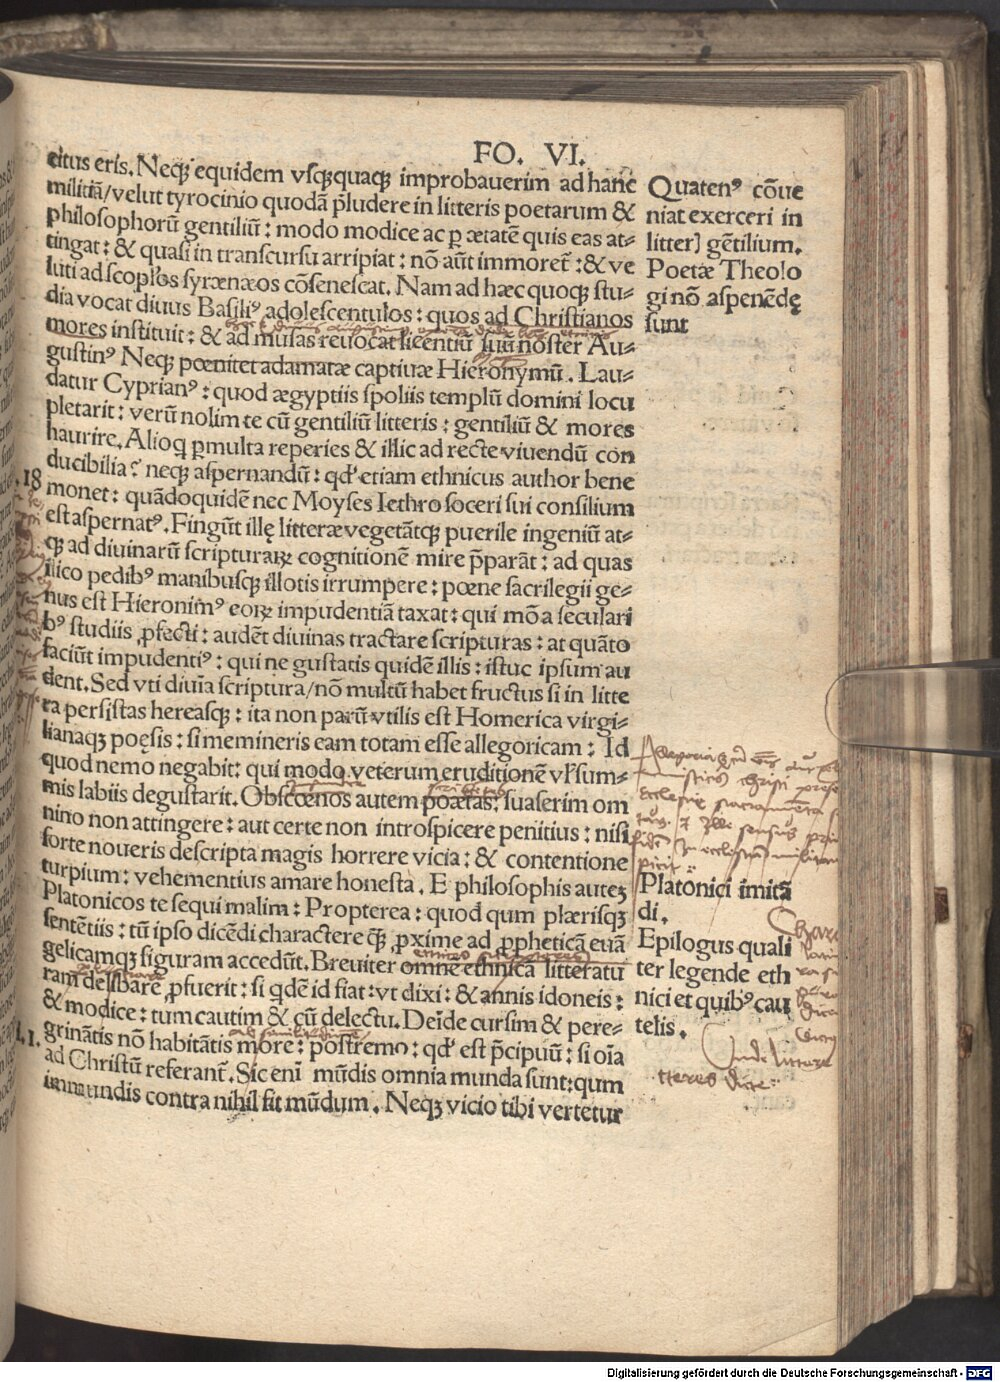 FO. VI.
citus eris. Neqꝫ equidem vſqꝫquaqꝫ improbauerim ad hanc
militiā/velut tyrocinio quodā p̄ludere in litteris poetarum &
philoſophorū gentiliū: modo modice ac ꝑ ætatē quis eas at⸗
tingat: & quaſi in tranſcurſu arripiat: nō aūt immoret̄: & ve
luti ad ſcopl̓os ſyrænæos cōſeneſcat. Nam ad hæc quoqꝫ ſtu⸗
dia vocat diuus Baſiliꝰ adoleſcentulos: quos ad Chriſtianos
mores inſtituit: & ad muſas reuocat licentiū ſuū noſter Au⸗
guſtinꝰ Neqꝫ pœnitet adamatæ captiuæ Hieronymū. Lau⸗
datur Cyprianꝰ: quod ægyptiis ſpoliis templū domini locu
pletarit: verū nolim te cū gentiliū litteris: gentiliū & mores
haurire. Alioq ꝑmulta reperies & illic ad recte viuendū con
ducibilia? neqꝫ aſpernandū: qd̓ etiam ethnicus author bene
monet: quādoquidē nec Moyſes Iethro ſoceri ſui conſilium
eſt aſpernatꝰ. Fingūt illę litteræ vegetātqꝫ puerile ingeniū at⸗
qꝫ ad diuinarū ſcripturaꝝ cognitionē mire p̄parāt: ad quas
ilico pedibꝰ manibuſqꝫ illotis irrumpere: pœne ſacrilegii ge⸗
nus eſt Hieronimꝰ eoꝝ impudentiā taxat: qui mōa ſeculari
bꝰ ſtudiis ꝓfecti: audēt diuinas tractare ſcripturas: at quāto
faciūt impudentiꝰ: qui ne guſtatis quidē illis: iſtuc ipſum au
dent. Sed vti diuīa ſcriptura/nō multū habet fructus ſi in litte
ra perſiſtas hereaſqꝫ: ita non parū vtilis eſt Homerica virgi⸗
lianaqꝫ poęſis: ſi memineris eam totam eſſe allegoricam: Id
quod nemo negabit: qui modo veterum eruditionē vl̓ſum⸗
mis labiis deguſtarit. Obſcœnos autem poætas: ſuaſerim om
nino non attingere: aut certe non introſpicere penitius: niſi
forte noueris deſcripta magis horrere vicia: & contentione
turpium: vehementius amare honeſta. E philoſophis auteꝫ
Platonicos te ſequi malim: Propterea: quod qum plæriſqꝫ
ſentētiis: tū ipſo dicēdi charactere q̄ꝫ ꝓxime ad ꝓpheticā euā
gelicamqꝫ figuram accedūt. Breuiter omnē ethnica litteratu
ram delibare ꝓfuerit: ſi qdē id fiat: vt dixi: & annis idoneis:
& modice: tum cautim & cū delectu. Deīde curſim & pere⸗
grinātis nō habitātis more: poſtremo: qd̓ eſt p̄cipuū: ſi oīa
ad Chriſtū referant̄. Sic enī mūdis omnia munda ſunt: qum
immundis contra nihil ſit mūdum. Neqꝫ vicio tibi vertetur
Quatenꝰ cōue
niat exerceri in
litteꝝ gētilium.
Poetæ Theolo
gi nō aſpenēdę
ſunt
Platonici imitā
di.
Epilogus quali
ter legende eth
nici et quibꝰ cau
telis.
.18
1.1.
Digitalisierung gefördert durch die Deutsche Forschungsgemeinschaft - DFG